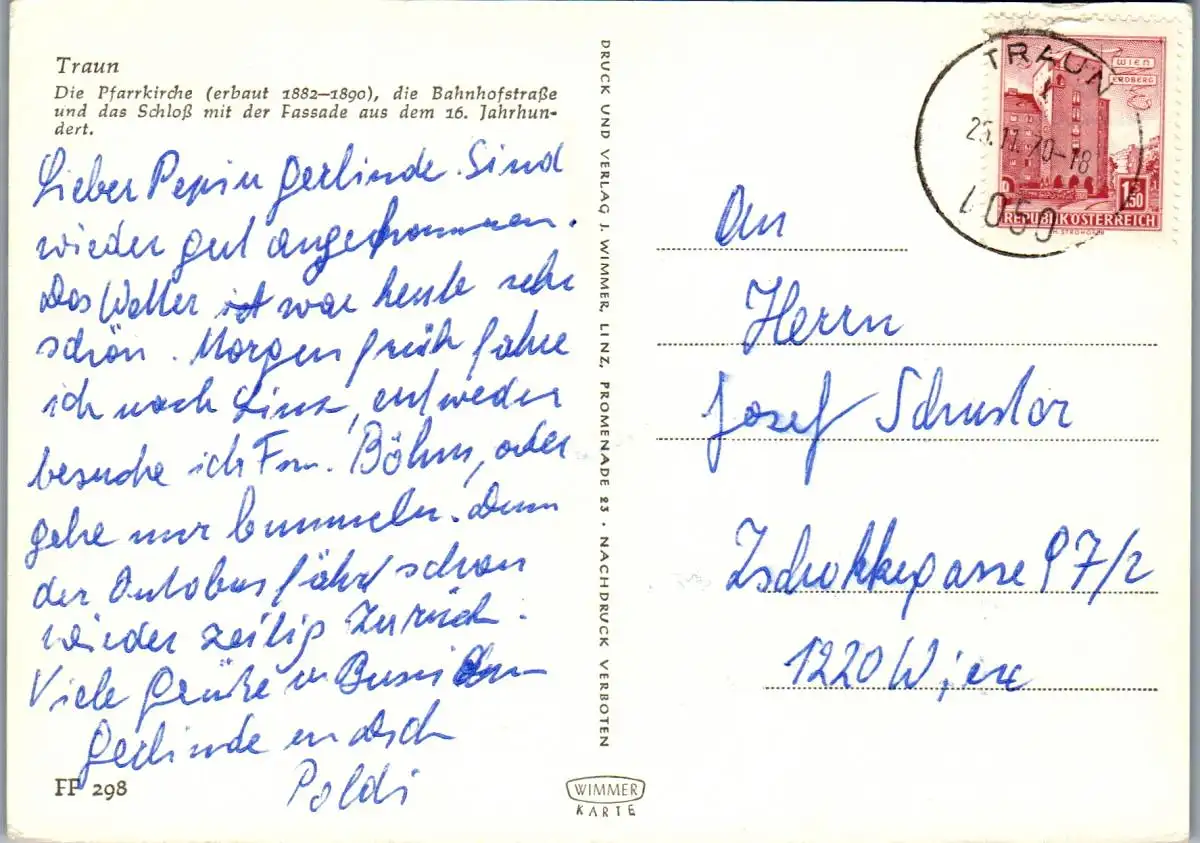 Traun
Die Pfarrkirche (erbaut 1882–1890), die Bahnhofstraße
und das Schloß mit der Fassade aus dem 16. Jahrhun-
dert.
Lieber Pepi u Gerlinde. Sind
wieder gut angekommen.
Das Wetter ist war heute sehr
schön. Morgen früh fahre
ich nach Linz, entweder
besuche ich Frau. Böhm, oder
gehe nur bummeln. Denn
der Autobus fährt schon
wieder zeitig zurück.
Viele Grüße u Bussi
Gerlinde
Poldi
FP 298
DRUCK UND VERLAG J. WIMMER, LINZ, PROMENADE 23 · NACHDRUCK VERBOTEN
WIMMER
KARTE
TRAUN
25.11.70-18
4050
WIEN
ERDBERG
1.50
REPUBLIK ÖSTERREICH
An
Herrn
Josef Schuster
Zschokkegasse 97/2
1220 Wien